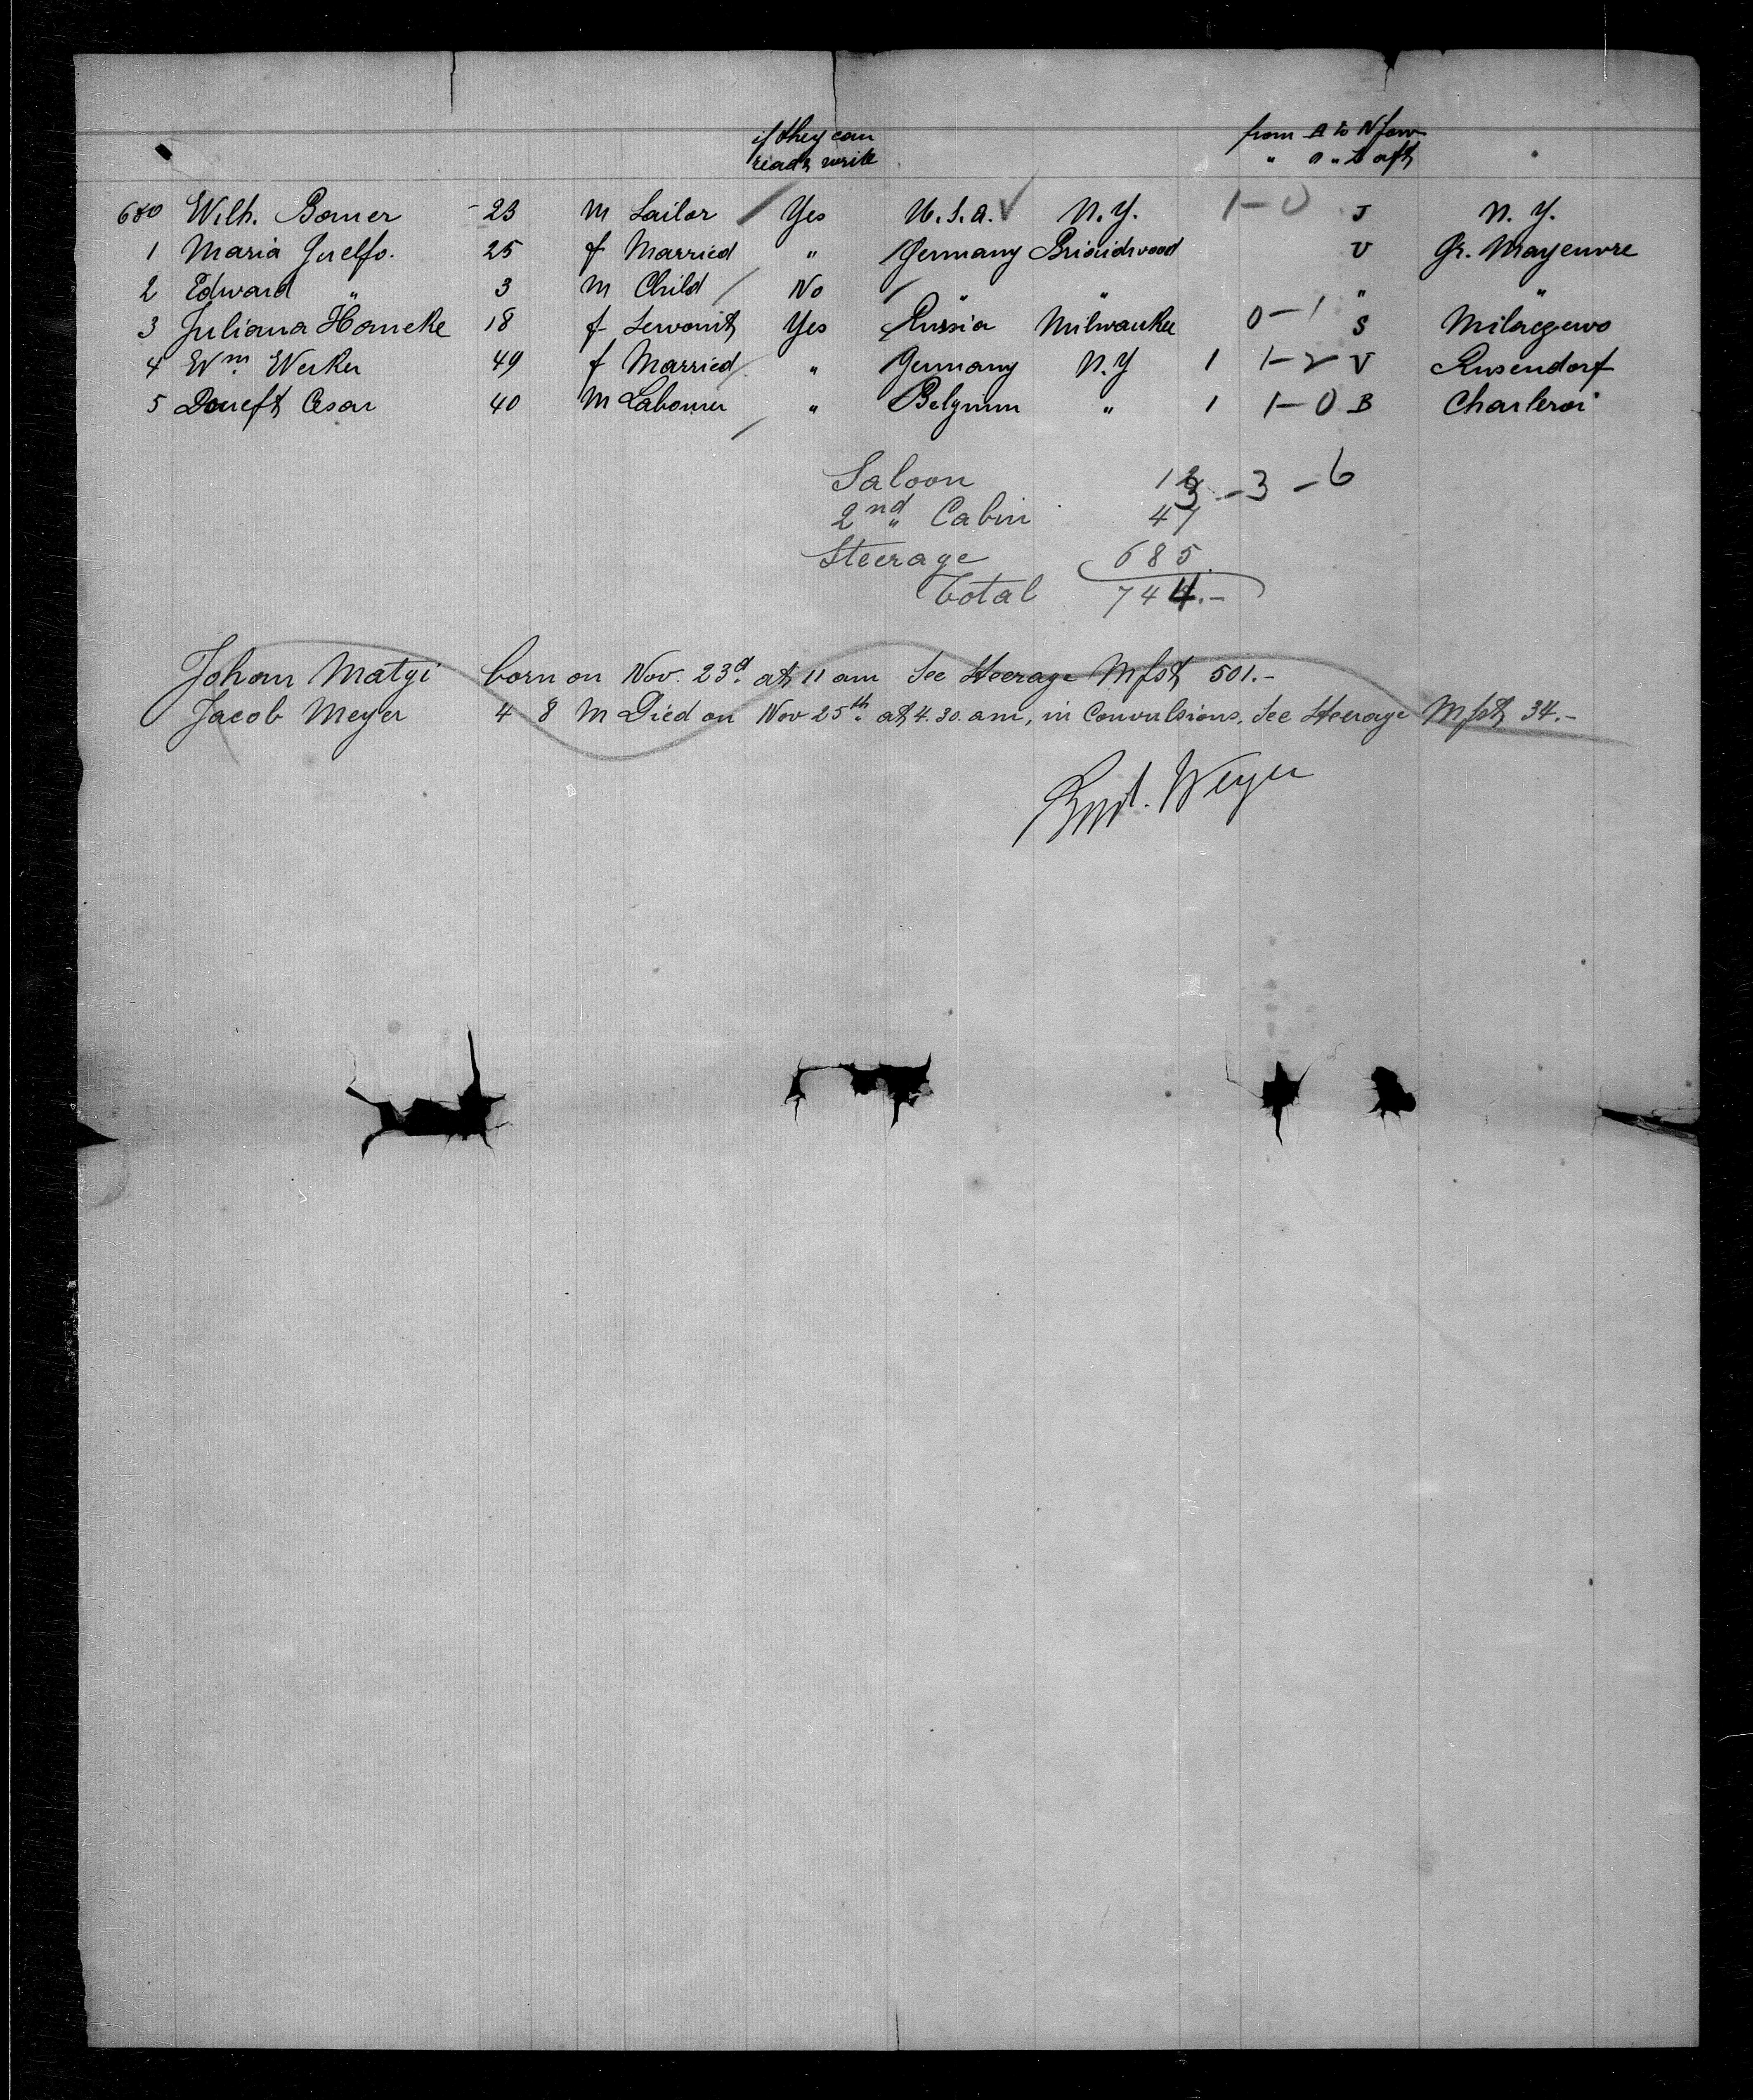 if they can from A to N forw
read & write " O " Z aft
680 Wilh. Bomer 23 m Sailor Yes U.S.A. N.Y. 1-0 J N.Y.
1 Maria Guelfo. 25 f Married " Germany V Gr.
2 Edward " 3 m Child No " " " "
3 Juliana Hancke 18 f Servant Yes Russia Milwaukee 0-1 S
4 Wm. Werker 49 f Married " Germany N.Y 1 1-2 V Rusendorf
5 Cesar 40 m Labourer " Belgium " 1 1-0 B Charleroi
Saloon 12 3-3-6
2nd Cabin 47
Steerage 685.
Total 744.-
Johann Matyi born on Nov. 23d. at 11 am See Steerage Mfst 501.-
Jacob Meyer 4 8 m Died on Nov 25th. at 4.30. am, in Convulsions. See Steerage Mfst 34.-
Weyer